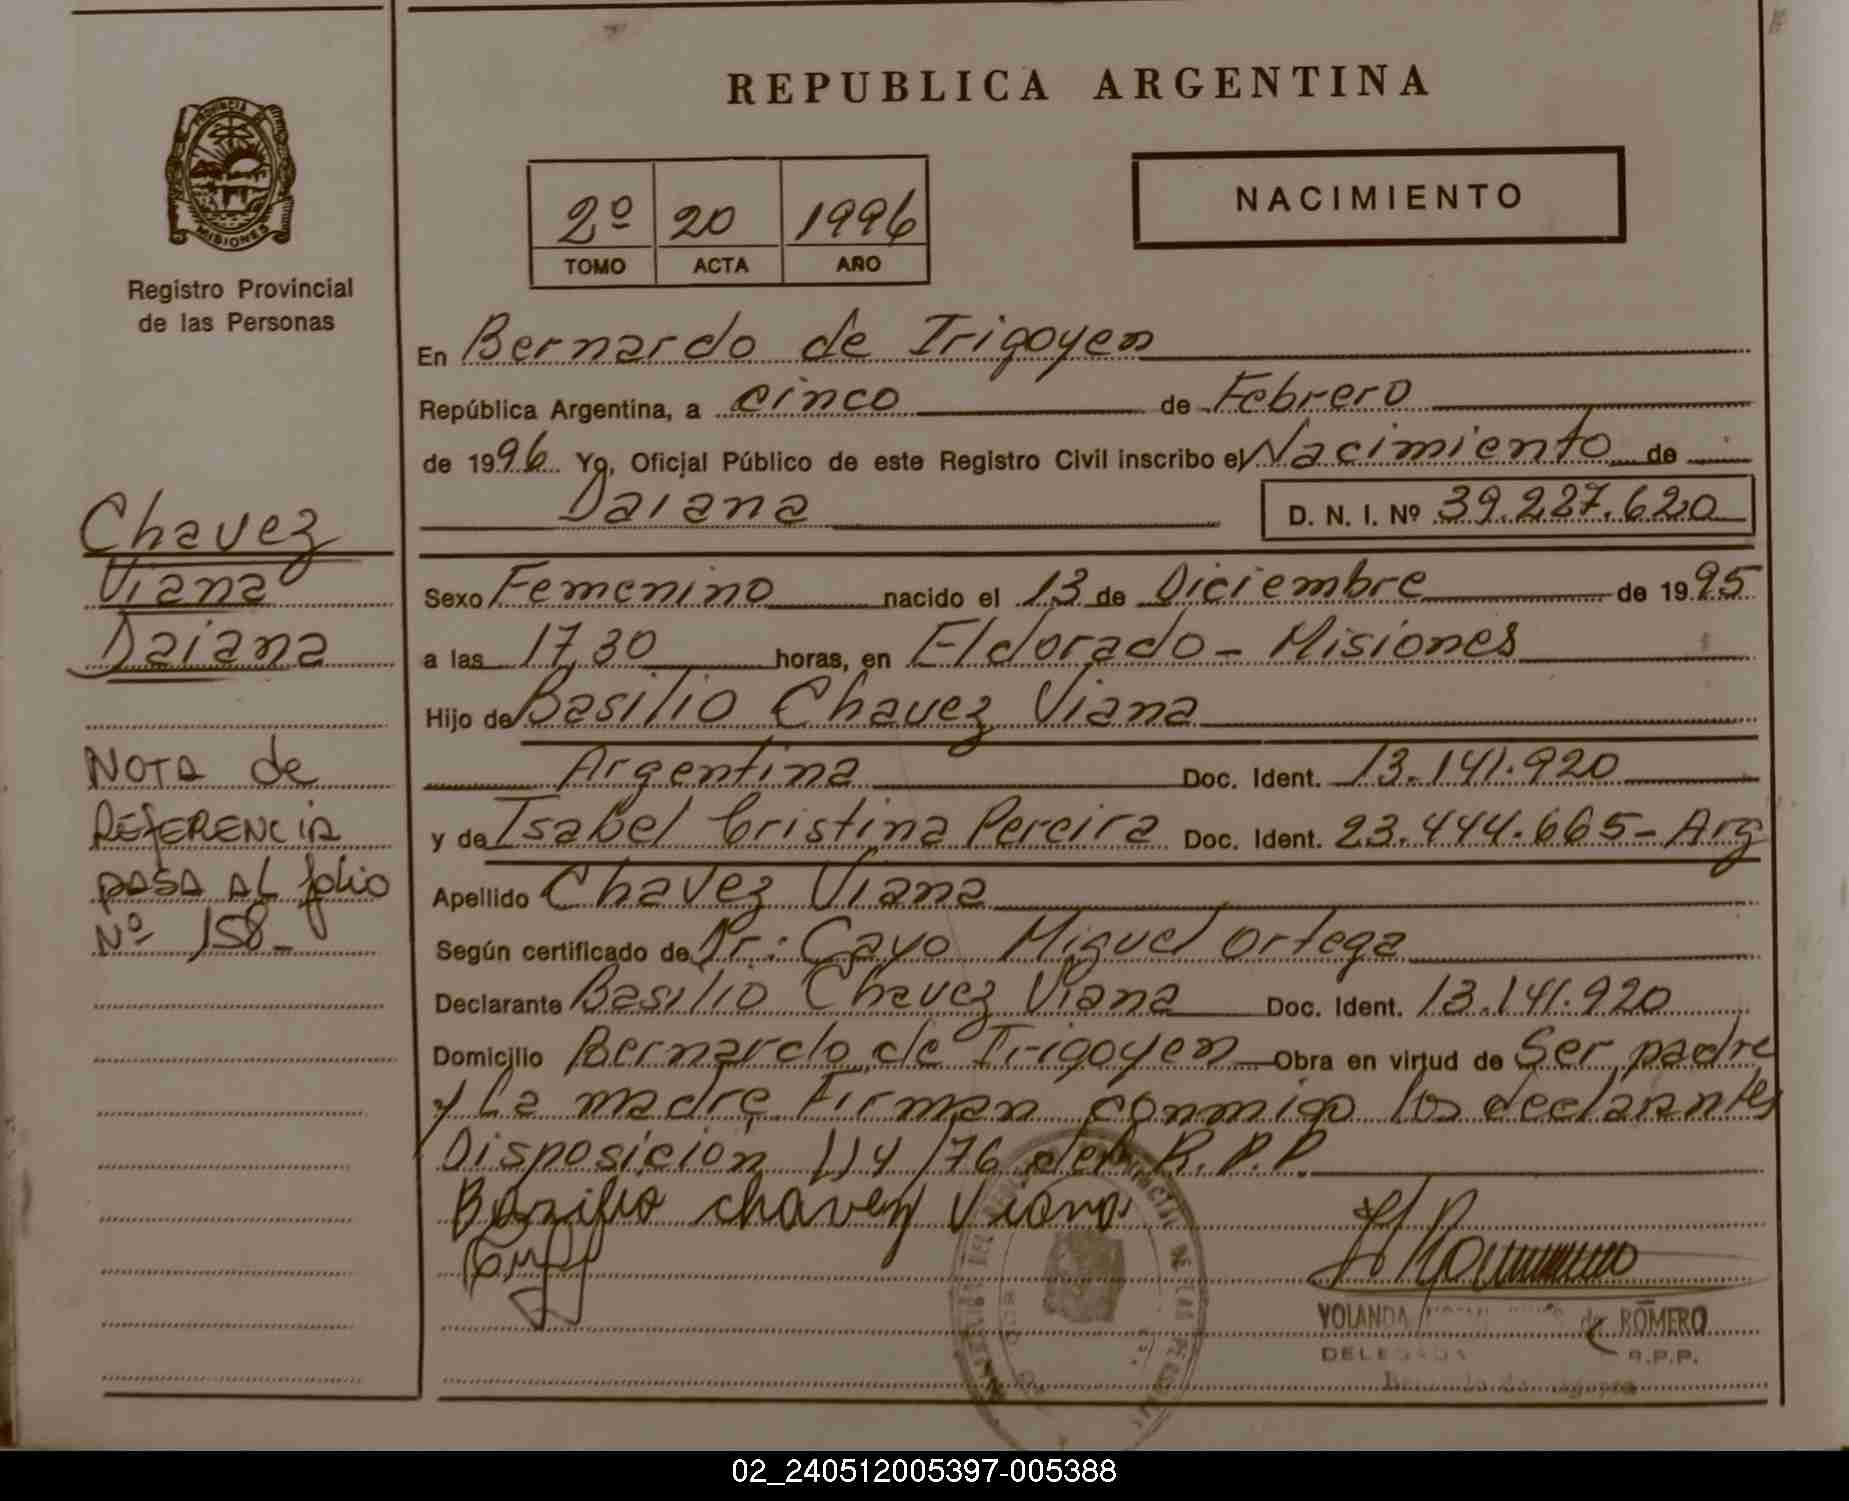 REPUBLICA ARGENTINA
PROVINCIA DE MISIONES
Registro Provincial
de las Personas
2º 20 1996
TOMO ACTA AÑO
NACIMIENTO
En Bernardo de Irigoyen
República Argentina, a cinco de Febrero
de 1996 Yo, Oficial Público de este Registro Civil inscribo el Nacimiento de
Daiana D. N. I. Nº 39.227.620
Sexo Femenino nacido el 13 de Diciembre de 1995
a las 17,30 horas, en Eldorado - Misiones
Hijo de Basilio Chavez Viana
Argentina Doc. Ident. 13.141.920
y de Isabel Cristina Pereira Doc. Ident. 23.444.665 - Arg
Apellido Chavez Viana
Según certificado de Dr.: Cayo Miguel Ortega
Declarante Basilio Chavez Viana Doc. Ident. 13.141.920
Domicilio Bernardo de Irigoyen Obra en virtud de Ser padre
y La madre Firman conmigo los declarantes
Disposición 114/76 del R.P.P.
Bazilio chavez Viana
YOLANDA de ROMERO
DELEGADA R.P.P.
Chavez
Viana
Daiana
NOTA de
REFERENCIA
PASA AL folio
Nº 158-
02_240512005397-005388